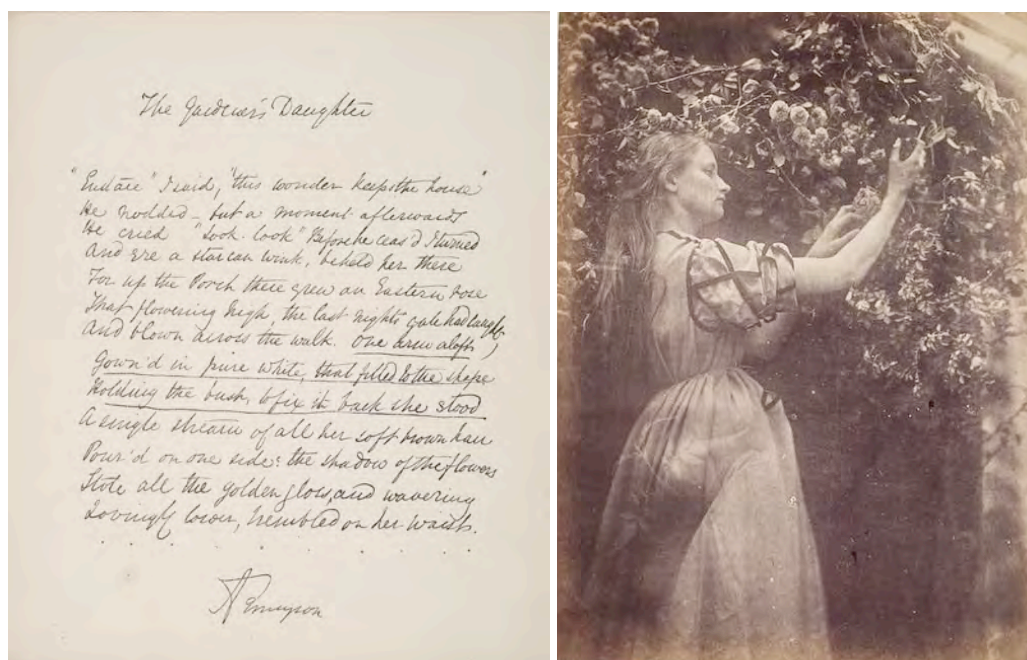 The Gardener's Daughter
"Eustace" I said, "this wonder keeps the house"
He nodded - but a moment afterwards
He cried "Look - look" Before he ceas'd I turned
And ere a star can wink, beheld her there
For up the Porch there grew an Eastern rose
That flowering high the last night's gale had caught,
And blown across the walk. One arm aloft,
Gown'd in pure white, that fitted to the shape
Holding the bush, to fix it back she stood
A single stream of all her soft brown hair
Pour'd on one side: the shadow of the flowers
Stole all the golden gloss, and wavering
Lovingly lower, trembled on her waist.
A Tennyson